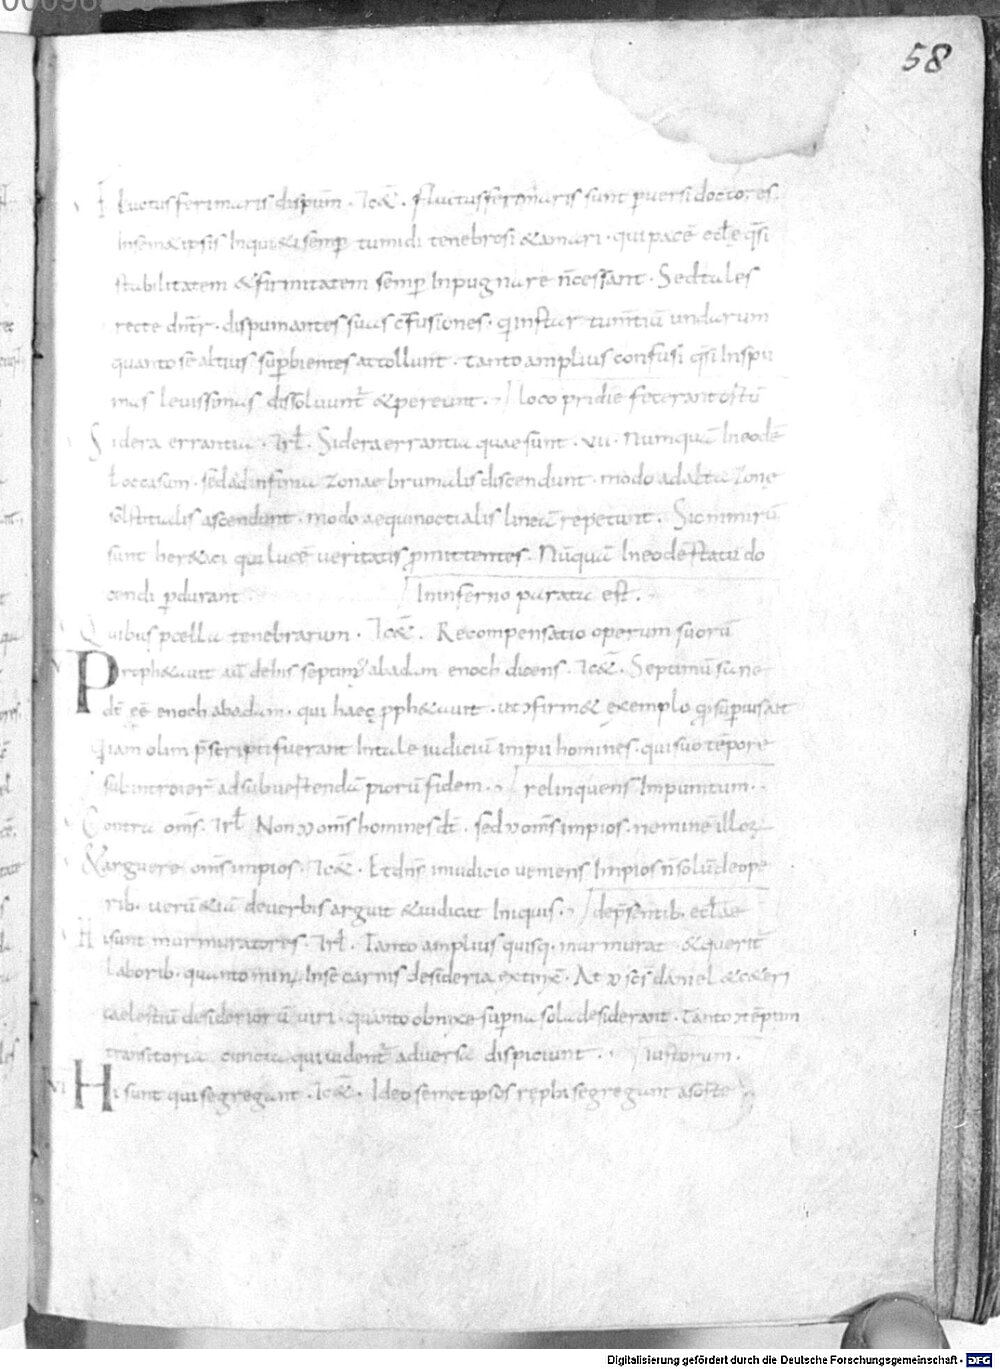 58
Fluctus feri maris dispum̄. Itē. Fluctus feri maris sunt puersi doctores.
In sem& ipsis Inqui&i semp tumidi tenebrosi & amari. qui pacē eccłe qsi
stabilitatem & firmitatem semp Inpugnare n̄ cessant. Sed tales
recte dn̄r. dispumantes suas c̄fusiones. q instar tum̄tiū undarum
quanto sē altius supbientes attollunt. tanto amplius confusi qsi In spu
mas leuissimas dissoluunt̄ & pereunt. loco pridiē fecerant
Sidera errantia. Irł. Sidera errantia quae sunt. vii. Numquā In eodē
ł occasum. sed ad infima zonae brumalis discendunt. modo ad alta zonę
solstitialis ascendunt. modo aequinoctialis lineā repetunt. Sic nimirū
sunt her&ici qui lucē ueritatis pmittentes. Nūquā In eodē statu do
cendi pdurant. In inferno parata est.
Quibus pcella tenebrarum. Itē. Recompensatio operum suorū
Proph&auit aū de his septim' ab adam enoch dicens. Itē. Septimū sane
dt̄ eē enoch ab adam. qui haec pph&auit. ut cfirm& exemplo q supius ait
qiam olim p̄scripti fuerant In tale iudiciū impii homines. qui suo tēpore
subintroier̄ ad subuertendā piorū fidem. relinquens Impunitum.
Contra om̄s. Irł Non c om̄s homines dt̄. sed c om̄s impios. neminē illoꝝ
& arguere om̄s impios. Itē. Et dn̄s in iudicio ueniens Impios n̄ solū de ope
rib. uerū &iā de uerbis arguit & iudicat Iniquis. de p̄sentib. eccłae
Hi sunt murmuratores. Irł. Tanto amplius quisq. murmurat & querit̄
laborib. quanto min' In sē carnis desideria extinx̄. At c scs daniel & c&eri
caelestiū desideriorū uiri. quanto obnixe superna sola desiderant. tanto c tēptim
transitoria cuncta qui uident̄ aduersa dispiciunt. iustorum.
VI Hi sunt qui segregant. Itē. Ideo semet ipsos rephi segregant a sorte
Digitalisierung gefördert durch die Deutsche Forschungsgemeinschaft - DFG